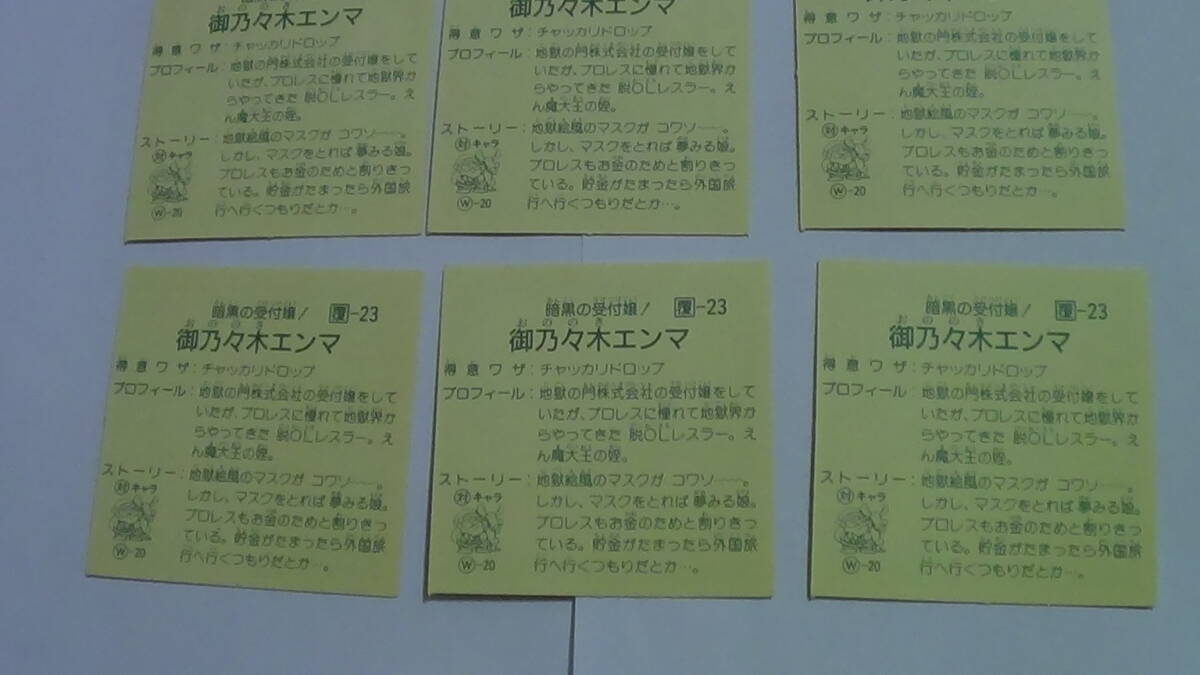 御乃々木エンマ
得意ワザ：チャッカリドロップ
プロフィール：地獄の門株式会社の受付嬢をして
いたが、プロレスに憧れて地獄界か
らやってきた 脱OLレスラー。え
ん魔大王の姪。
ストーリー：地獄絵風のマスクが コワソ――。
しかし、マスクをとれば 夢みる娘。
プロレスもお金のためと割りきっ
ている。貯金がたまったら外国旅
行へ行くつもりだとか…。
対キャラ
W-20
御乃々木エンマ
得意ワザ：チャッカリドロップ
プロフィール：地獄の門株式会社の受付嬢をして
いたが、プロレスに憧れて地獄界か
らやってきた 脱OLレスラー。え
ん魔大王の姪。
ストーリー：地獄絵風のマスクが コワソ――。
しかし、マスクをとれば 夢みる娘。
プロレスもお金のためと割りきっ
ている。貯金がたまったら外国旅
行へ行くつもりだとか…。
対キャラ
W-20
得意ワザ：チャッカリドロップ
プロフィール：地獄の門株式会社の受付嬢をして
いたが、プロレスに憧れて地獄界か
らやってきた 脱OLレスラー。え
ん魔大王の姪。
ストーリー：地獄絵風のマスクが コワソ――。
しかし、マスクをとれば 夢みる娘。
プロレスもお金のためと割りきっ
ている。貯金がたまったら外国旅
行へ行くつもりだとか…。
対キャラ
W-20
暗黒の受付嬢！ 覆-23
御乃々木エンマ
得意ワザ：チャッカリドロップ
プロフィール：地獄の門株式会社の受付嬢をして
いたが、プロレスに憧れて地獄界か
らやってきた 脱OLレスラー。え
ん魔大王の姪。
ストーリー：地獄絵風のマスクが コワソ――。
しかし、マスクをとれば 夢みる娘。
プロレスもお金のためと割りきっ
ている。貯金がたまったら外国旅
行へ行くつもりだとか…。
対キャラ
W-20
暗黒の受付嬢！ 覆-23
御乃々木エンマ
得意ワザ：チャッカリドロップ
プロフィール：地獄の門株式会社の受付嬢をして
いたが、プロレスに憧れて地獄界か
らやってきた 脱OLレスラー。え
ん魔大王の姪。
ストーリー：地獄絵風のマスクが コワソ――。
しかし、マスクをとれば 夢みる娘。
プロレスもお金のためと割りきっ
ている。貯金がたまったら外国旅
行へ行くつもりだとか…。
対キャラ
W-20
暗黒の受付嬢！ 覆-23
御乃々木エンマ
得意ワザ：チャッカリドロップ
プロフィール：地獄の門株式会社の受付嬢をして
いたが、プロレスに憧れて地獄界か
らやってきた 脱OLレスラー。え
ん魔大王の姪。
ストーリー：地獄絵風のマスクが コワソ――。
しかし、マスクをとれば 夢みる娘。
プロレスもお金のためと割りきっ
ている。貯金がたまったら外国旅
行へ行くつもりだとか…。
対キャラ
W-20